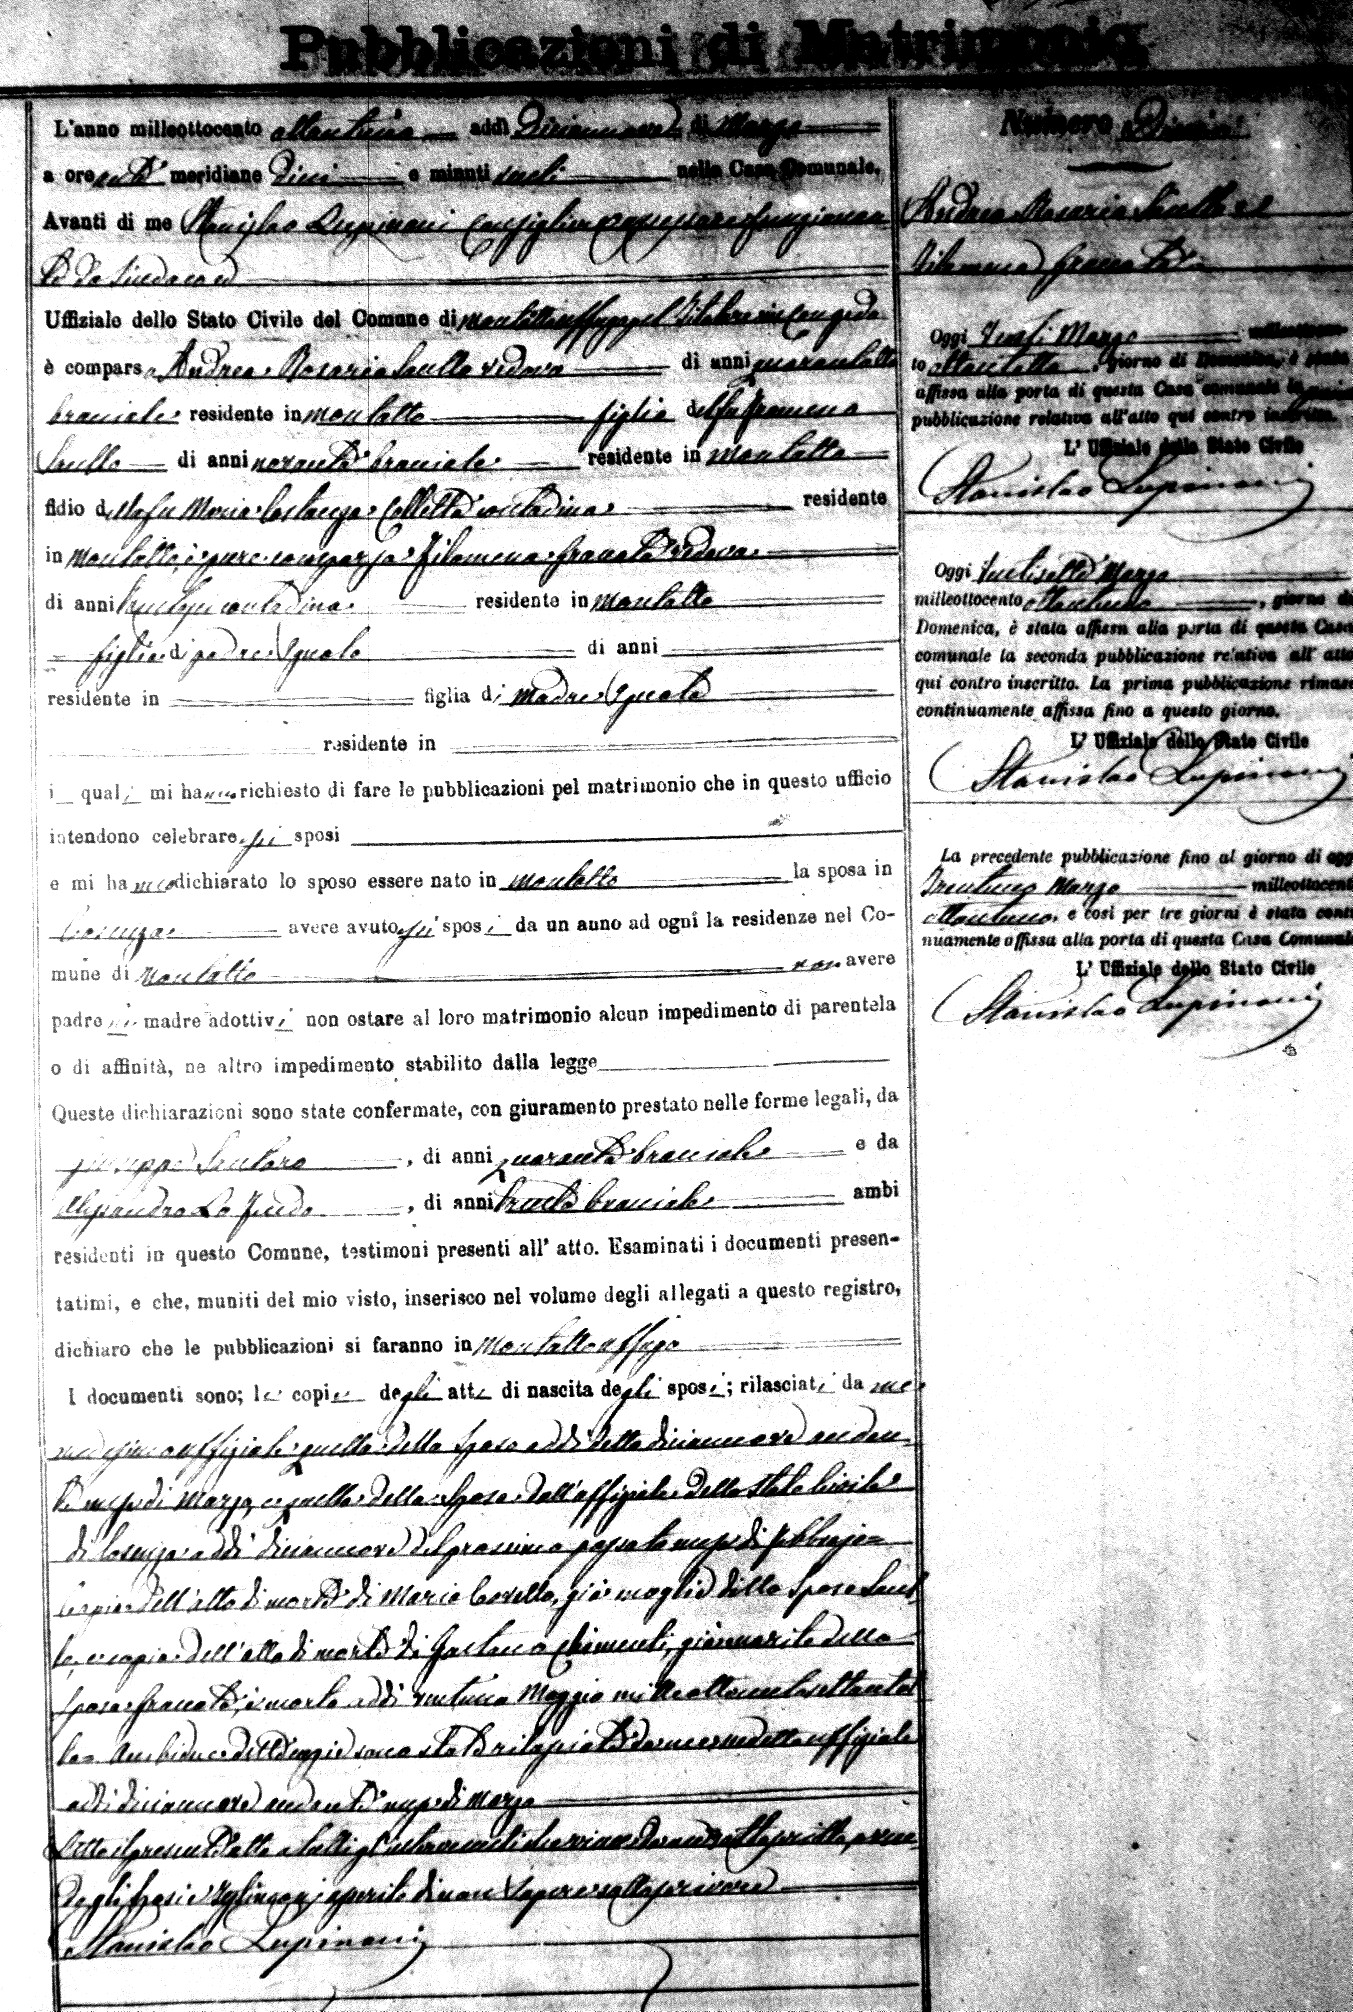 Pubblicazioni di Matrimonio
L'anno milleottocento ottantuno addì Diciannove di Marzo
a ore anti meridiane Dieci e minuti venti nella Casa Comunale.
Avanti di me Stanislao Lupinacci Consigliere assessore funzionan
te da Sindaco
Uffiziale dello Stato Civile del Comune di Montalto uffugo pel Titolare in Congedo
è compars Andrea Rosario Sacello vedovo di anni quarantotto
bracciale residente in Montalto figlio del fu Francesco
di anni novanta bracciale residente in Montalto
fidio della fu Maria Costanza Colletta contadina residente
in Montalto, è pure comparsa Filomena Granata vedova
di anni contadina residente in Montalto
figlia di padre Ignoto di anni
residente in figlia di madre Ignota
residente in
i quali mi hanno richiesto di fare le pubblicazioni pel matrimonio che in questo ufficio
intendono celebrare gli sposi
e mi hanno dichiarato lo sposo essere nato in Montalto la sposa in
Cosenza avere avuto gli sposi da un anno ad ogni la residenze nel Co-
mune di Montalto non avere
padre nè madre adottivi non ostare al loro matrimonio alcun impedimento di parentela
o di affinità, ne altro impedimento stabilito dalla legge
Queste dichiarazioni sono state confermate, con giuramento prestato nelle forme legali, da
Giuseppe Santoro, di anni quaranta bracciale e da
Alessandro Lo Feudo, di anni trenta bracciale ambi
residenti in questo Comune, testimoni presenti all' atto. Esaminati i documenti presen-
tatimi, e che, muniti del mio visto, inserisco nel volume degli allegati a questo registro,
dichiaro che le pubblicazioni si faranno in Montalto uffugo
I documenti sono; le copie degli atti di nascita degli sposi; rilasciati da me
medesimo uffiziale quella dello Sposo addì detto diciannove andan
te mese di Marzo, e quella della Sposa dall'uffiziale dello Stato Civile
di Cosenza addì diciannove del prossimo passato mese di Febbrajo=
Copia dell'atto di morte di Maria Covello, già moglie dello Sposo
e copia dell'atto di morte di Gaetano Chimenti, già marito della
sposa Granata, è morto addì ventuno Maggio milleottocentosettantot
to= Ambidue sono state rilasciate da me medesimo uffiziale
addì diciannove andante mese di Marzo
Letto il presente atto a tutti gl'intervenuti
degli sposi e testimoni asserito di non sapere sottoscrivere
Stanislao Lupinacci
Numero
Andrea Rosario Sacello e
Filomena Granata
Oggi Venti Marzo milleottocen-
to ottantuno, giorno di Domenica, è stata
affissa alla porta di questa Casa comunale la prima
pubblicazione relativa all'atto qui contro inscritto.
L' Uffiziale dello Stato Civile
Stanislao Lupinacci
Oggi Ventisette Marzo
milleottocento ottantuno, giorno di
Domenica, è stata affissa alla porta di questa Casa
comunale la seconda pubblicazione relativa all' atto
qui contro inscritto. La prima pubblicazione rimase
continuamente affissa fino a questo giorno.
L' Uffiziale dello Stato Civile
Stanislao Lupinacci
La precedente pubblicazione fino al giorno di oggi
Trentuno Marzo milleottocent
ottantuno, e così per tre giorni è stata conti
nuamente affissa alla porta di questa Casa Comunale
L' Uffiziale dello Stato Civile
Stanislao Lupinacci